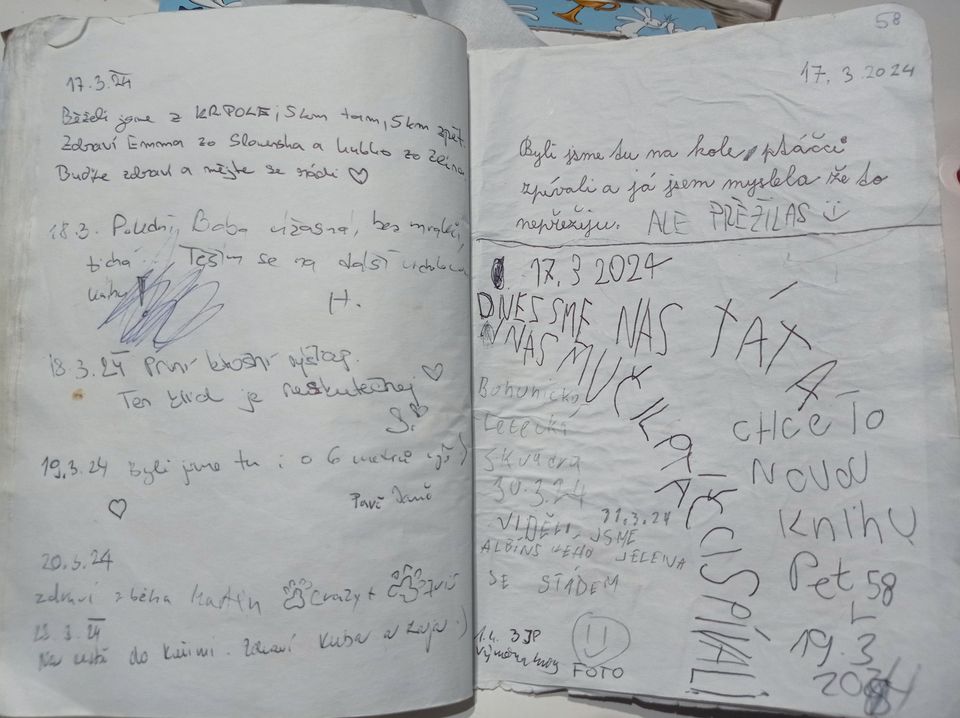 17.3.24
Běželi jsme z KRPOLE, 5km tam, 5km zpět.
Zdraví Emma zo Slovenska a kubko zo
Buďte zdraví a mějte se rádi ♡
18.3. Polední Baba úžasná, bez mraků,
tichá. Těším se na další vrcholovou
knihu!
H.
18.3.24 První letošní výstup.
Ten klid je neskutečnej ♡
19.3.24 Byli jsme tu i o 6 metrů výš :)
♡
20.3.24
zdraví z běhu Martin Crazy +
23.3.24
Na cestě do Kuřimi. Zdraví Kuba a Kaja :)
58
17. 3. 2024
Byli jsme tu na kole, ptáčci
zpívali a já jsem myslela že to
nepřežiju. ALE PŘEŽILAS
17.3 2024
DNES SME NAS TÁTA
NAS MUČIL PTÁCI SPÍVALI
Bohunická
Letecká
Skvadra
30.3.24
31.3.24
VIDĚLI JSME
ALBÍNSKÉHO JELENA
SE STÁDEM
1.4. 3JP
FOTO
CHCE TO
NOVOU
KNIHU
Pet 58
L
19.3
2024